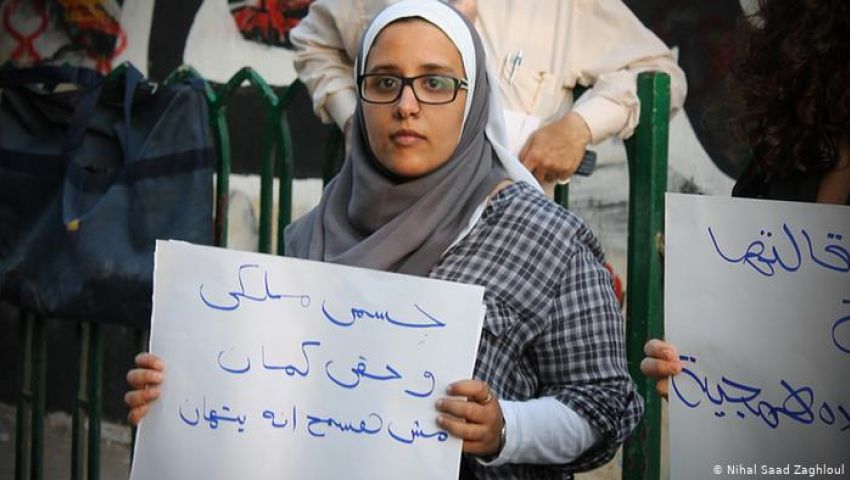 جسمى ملكى
وحقى كمان
مش هسمح انه يتهان
قالتها
همجية
© Nihal Saad Zaghloul